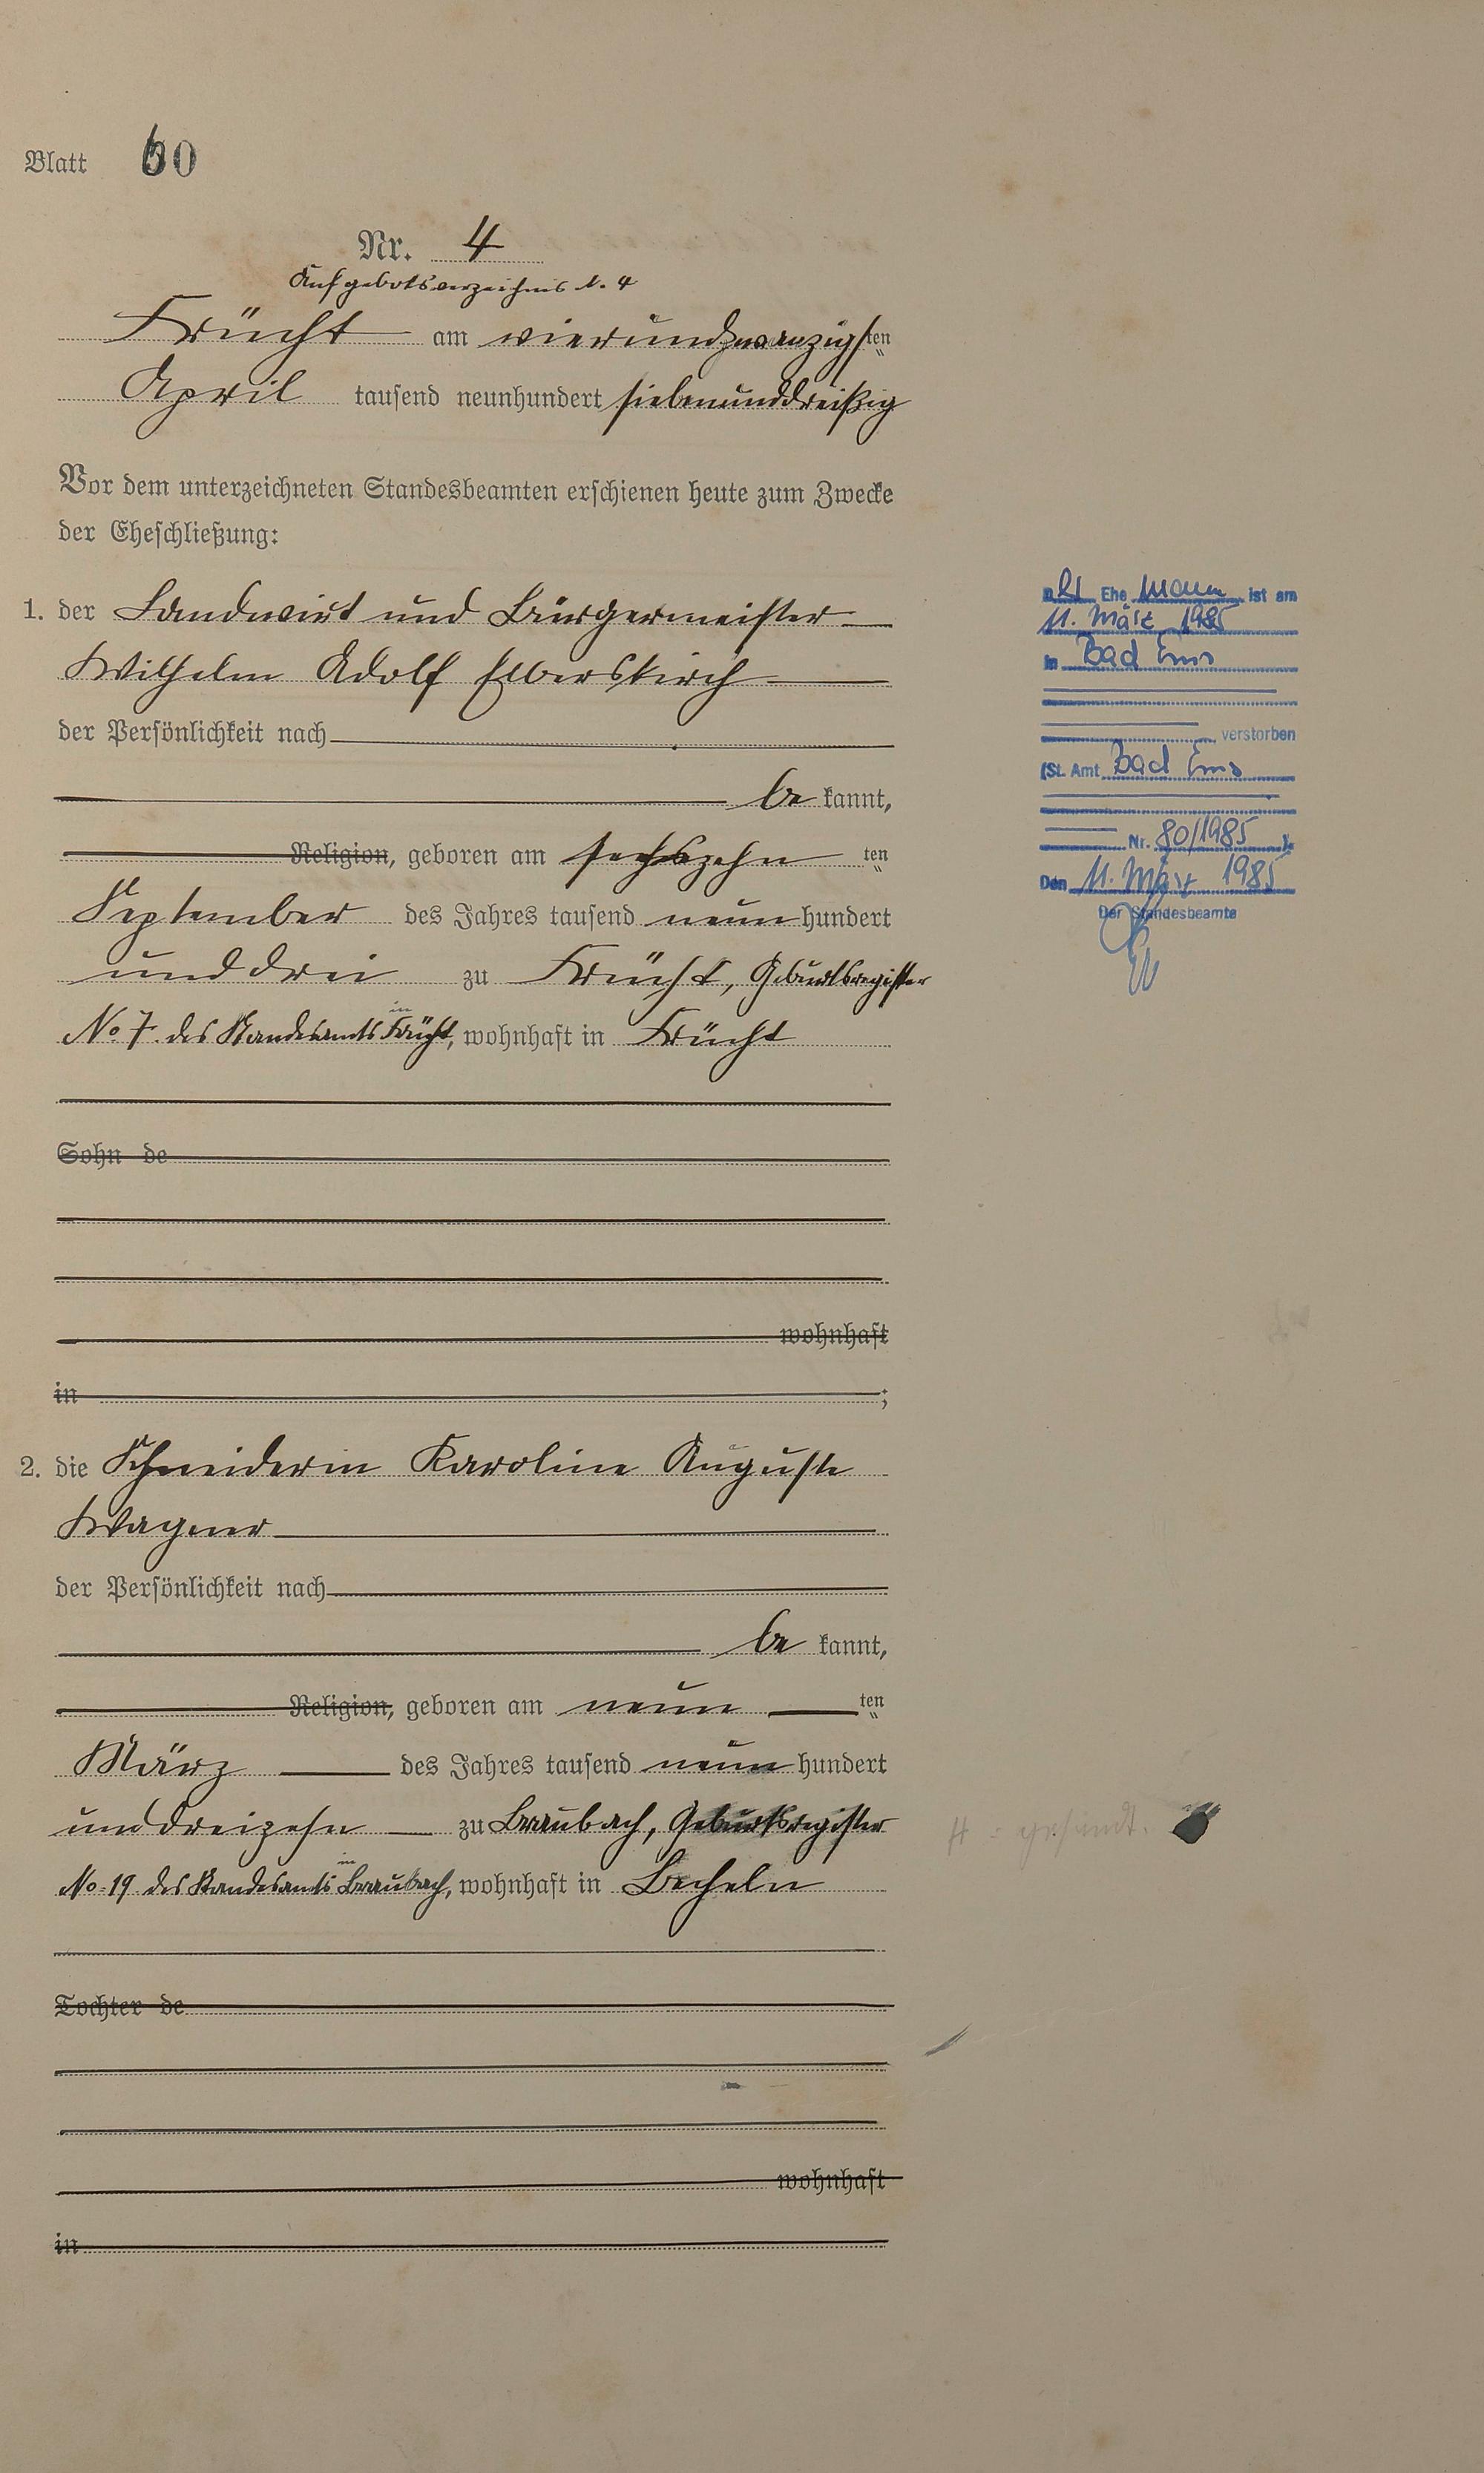 Blatt 60
Nr. 4
Aufgebotsverzeichnis N. 4
Frücht am vierundzwanzigsten
April tausend neunhundert siebenunddreißig
Vor dem unterzeichneten Standesbeamten erschienen heute zum Zwecke
der Eheschließung:
1. der Landwirt und Bürgermeister
Wilhelm Adolf Elberskirch
der Persönlichkeit nach
be kannt,
Religion, geboren am sechszehn ten
September des Jahres tausend neun hundert
und drei zu Frücht, Geburtsregister
No. 7 des Standesamts in Frücht, wohnhaft in Frücht
Sohn de
wohnhaft
in ;
2. die Schneiderin Karoline Auguste
Wagner
der Persönlichkeit nach
be kannt,
Religion, geboren am neun ten
März des Jahres tausend neun hundert
und dreizehn zu Braubach, Geburtsregister
No. 19 des Standesamts in Braubach, wohnhaft in Becheln
Tochter de
wohnhaft
in
Der Ehe mann ist am
11. März 1985
in Bad Ems
verstorben
(St. Amt Bad Ems
Nr. 80/1985 ).
Den 11. März 1985
Der Standesbeamte
gesandt.